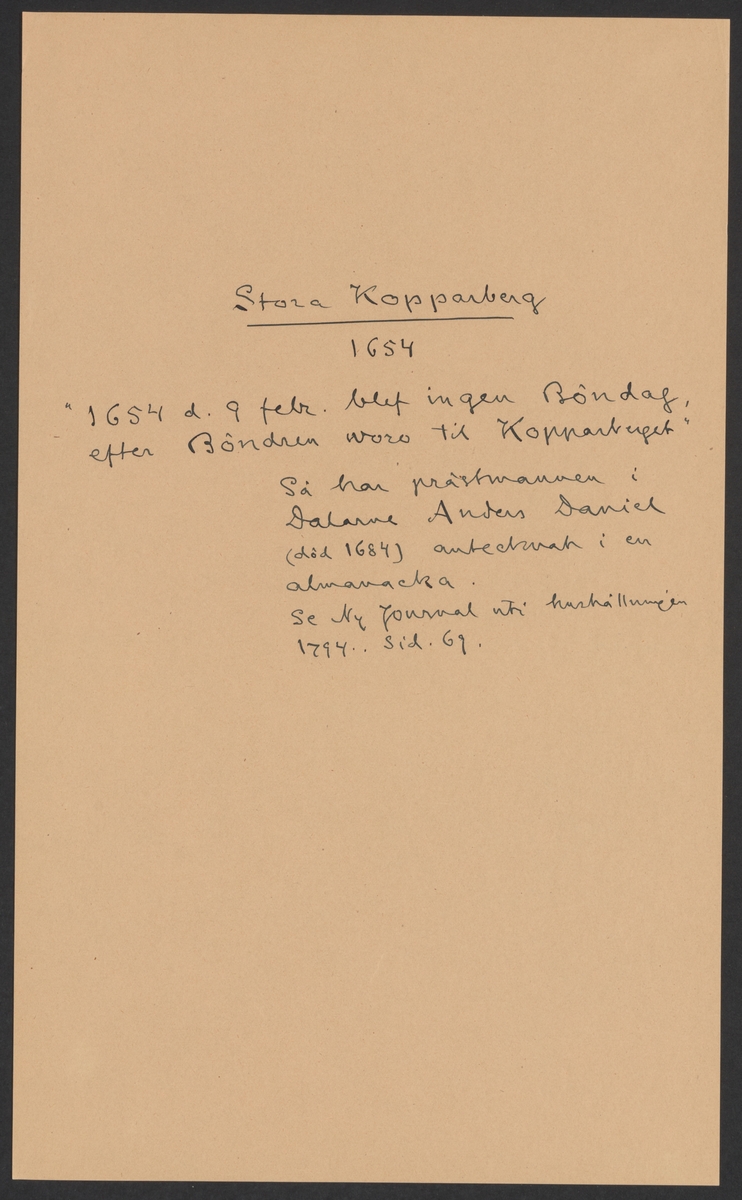 Stora Kopparberg
1654
"1654 d. 9 febr. blef ingen Böndag,
efter Böndren woro til Kopparberget"
Så har prästmannen i
Dalarne Anders Daniel
(död 1684) antecknat i en
almanacka.
Se Ny Journal uti hushållningen
1794.. Sid. 69.